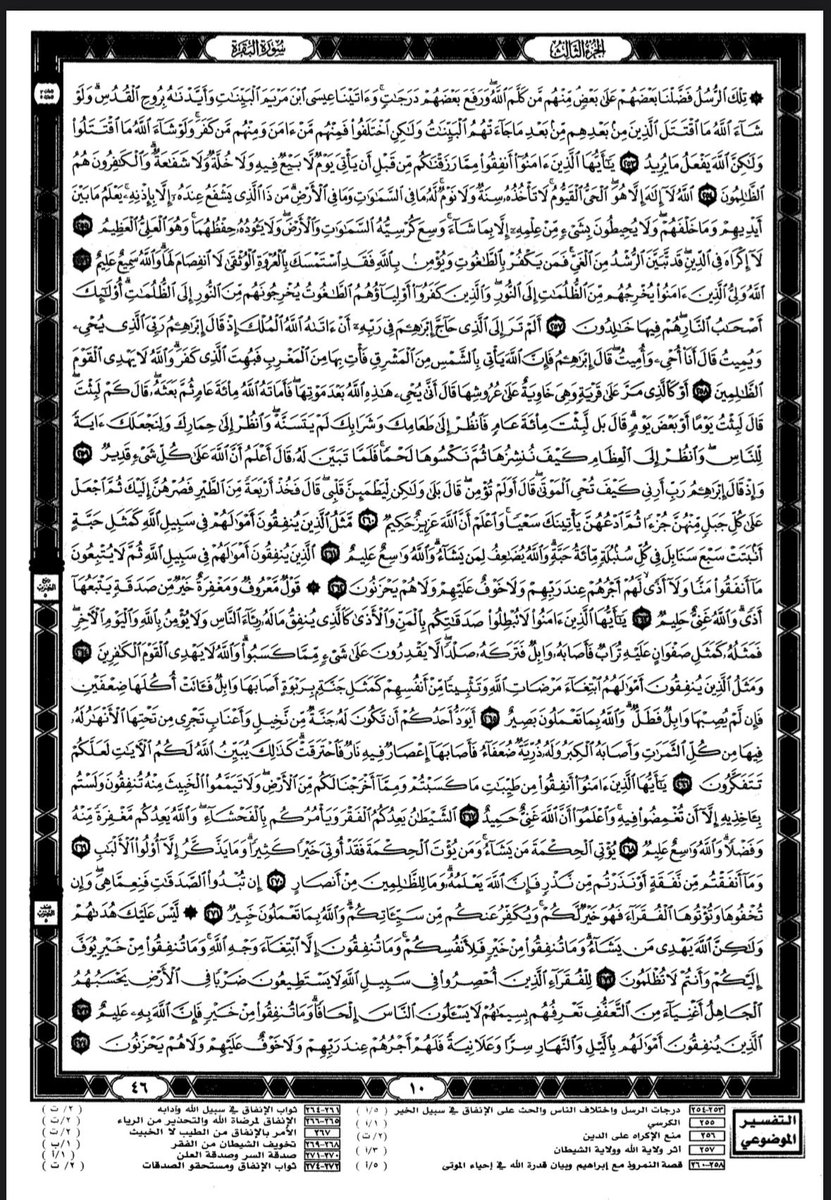 الجزء الثالث
سورة البقرة
۞ تِلْكَ الرُّسُلُ فَضَّلْنَا بَعْضَهُمْ عَلَىٰ بَعْضٍ مِّنْهُم مَّن كَلَّمَ اللَّهُ وَرَفَعَ بَعْضَهُمْ دَرَجَاتٍ وَءَاتَيْنَا عِيسَى ابْنَ مَرْيَمَ الْبَيِّنَاتِ وَأَيَّدْنَاهُ بِرُوحِ الْقُدُسِ وَلَوْ
شَاءَ اللَّهُ مَا اقْتَتَلَ الَّذِينَ مِن بَعْدِهِم مِّن بَعْدِ مَا جَاءَتْهُمُ الْبَيِّنَاتُ وَلَٰكِنِ اخْتَلَفُوا فَمِنْهُم مَّنْ ءَامَنَ وَمِنْهُم مَّن كَفَرَ وَلَوْ شَاءَ اللَّهُ مَا اقْتَتَلُوا
وَلَٰكِنَّ اللَّهَ يَفْعَلُ مَا يُرِيدُ ٢٥٣ يَا أَيُّهَا الَّذِينَ ءَامَنُوا أَنفِقُوا مِمَّا رَزَقْنَاكُم مِّن قَبْلِ أَن يَأْتِيَ يَوْمٌ لَّا بَيْعٌ فِيهِ وَلَا خُلَّةٌ وَلَا شَفَاعَةٌ وَالْكَافِرُونَ هُمُ
الظَّالِمُونَ ٢٥٤ اللَّهُ لَا إِلَٰهَ إِلَّا هُوَ الْحَيُّ الْقَيُّومُ لَا تَأْخُذُهُ سِنَةٌ وَلَا نَوْمٌ لَّهُ مَا فِي السَّمَاوَاتِ وَمَا فِي الْأَرْضِ مَن ذَا الَّذِي يَشْفَعُ عِندَهُ إِلَّا بِإِذْنِهِ يَعْلَمُ مَا بَيْنَ
أَيْدِيهِمْ وَمَا خَلْفَهُمْ وَلَا يُحِيطُونَ بِشَيْءٍ مِّنْ عِلْمِهِ إِلَّا بِمَا شَاءَ وَسِعَ كُرْسِيُّهُ السَّمَاوَاتِ وَالْأَرْضَ وَلَا يَئُودُهُ حِفْظُهُمَا وَهُوَ الْعَلِيُّ الْعَظِيمُ ٢٥٥
لَا إِكْرَاهَ فِي الدِّينِ قَد تَّبَيَّنَ الرُّشْدُ مِنَ الْغَيِّ فَمَن يَكْفُرْ بِالطَّاغُوتِ وَيُؤْمِن بِاللَّهِ فَقَدِ اسْتَمْسَكَ بِالْعُرْوَةِ الْوُثْقَىٰ لَا انفِصَامَ لَهَا وَاللَّهُ سَمِيعٌ عَلِيمٌ ٢٥٦
اللَّهُ وَلِيُّ الَّذِينَ ءَامَنُوا يُخْرِجُهُم مِّنَ الظُّلُمَاتِ إِلَى النُّورِ وَالَّذِينَ كَفَرُوا أَوْلِيَاؤُهُمُ الطَّاغُوتُ يُخْرِجُونَهُم مِّنَ النُّورِ إِلَى الظُّلُمَاتِ أُولَٰئِكَ
أَصْحَابُ النَّارِ هُمْ فِيهَا خَالِدُونَ ٢٥٧ أَلَمْ تَرَ إِلَى الَّذِي حَاجَّ إِبْرَاهِمَ فِي رَبِّهِ أَنْ ءَاتَاهُ اللَّهُ الْمُلْكَ إِذْ قَالَ إِبْرَاهِمُ رَبِّيَ الَّذِي يُحْيِي
وَيُمِيتُ قَالَ أَنَا أُحْيِي وَأُمِيتُ قَالَ إِبْرَاهِمُ فَإِنَّ اللَّهَ يَأْتِي بِالشَّمْسِ مِنَ الْمَشْرِقِ فَأْتِ بِهَا مِنَ الْمَغْرِبِ فَبُهِتَ الَّذِي كَفَرَ وَاللَّهُ لَا يَهْدِي الْقَوْمَ
الظَّالِمِينَ ٢٥٨ أَوْ كَالَّذِي مَرَّ عَلَىٰ قَرْيَةٍ وَهِيَ خَاوِيَةٌ عَلَىٰ عُرُوشِهَا قَالَ أَنَّىٰ يُحْيِي هَٰذِهِ اللَّهُ بَعْدَ مَوْتِهَا فَأَمَاتَهُ اللَّهُ مِائَةَ عَامٍ ثُمَّ بَعَثَهُ قَالَ كَمْ لَبِثْتَ
قَالَ لَبِثْتُ يَوْمًا أَوْ بَعْضَ يَوْمٍ قَالَ بَل لَّبِثْتَ مِائَةَ عَامٍ فَانظُرْ إِلَىٰ طَعَامِكَ وَشَرَابِكَ لَمْ يَتَسَنَّهْ وَانظُرْ إِلَىٰ حِمَارِكَ وَلِنَجْعَلَكَ ءَايَةً
لِّلنَّاسِ وَانظُرْ إِلَى الْعِظَامِ كَيْفَ نُنشِزُهَا ثُمَّ نَكْسُوهَا لَحْمًا فَلَمَّا تَبَيَّنَ لَهُ قَالَ أَعْلَمُ أَنَّ اللَّهَ عَلَىٰ كُلِّ شَيْءٍ قَدِيرٌ ٢٥٩
وَإِذْ قَالَ إِبْرَاهِمُ رَبِّ أَرِنِي كَيْفَ تُحْيِي الْمَوْتَىٰ قَالَ أَوَلَمْ تُؤْمِن قَالَ بَلَىٰ وَلَٰكِن لِّيَطْمَئِنَّ قَلْبِي قَالَ فَخُذْ أَرْبَعَةً مِّنَ الطَّيْرِ فَصُرْهُنَّ إِلَيْكَ ثُمَّ اجْعَلْ
عَلَىٰ كُلِّ جَبَلٍ مِّنْهُنَّ جُزْءًا ثُمَّ ادْعُهُنَّ يَأْتِينَكَ سَعْيًا وَاعْلَمْ أَنَّ اللَّهَ عَزِيزٌ حَكِيمٌ ٢٦٠ مَّثَلُ الَّذِينَ يُنفِقُونَ أَمْوَالَهُمْ فِي سَبِيلِ اللَّهِ كَمَثَلِ حَبَّةٍ
أَنبَتَتْ سَبْعَ سَنَابِلَ فِي كُلِّ سُنبُلَةٍ مِّائَةُ حَبَّةٍ وَاللَّهُ يُضَاعِفُ لِمَن يَشَاءُ وَاللَّهُ وَاسِعٌ عَلِيمٌ ٢٦١ الَّذِينَ يُنفِقُونَ أَمْوَالَهُمْ فِي سَبِيلِ اللَّهِ ثُمَّ لَا يُتْبِعُونَ
مَا أَنفَقُوا مَنًّا وَلَا أَذًى لَّهُمْ أَجْرُهُمْ عِندَ رَبِّهِمْ وَلَا خَوْفٌ عَلَيْهِمْ وَلَا هُمْ يَحْزَنُونَ ٢٦٢ ۞ قَوْلٌ مَّعْرُوفٌ وَمَغْفِرَةٌ خَيْرٌ مِّن صَدَقَةٍ يَتْبَعُهَا
أَذًى وَاللَّهُ غَنِيٌّ حَلِيمٌ ٢٦٣ يَا أَيُّهَا الَّذِينَ ءَامَنُوا لَا تُبْطِلُوا صَدَقَاتِكُم بِالْمَنِّ وَالْأَذَىٰ كَالَّذِي يُنفِقُ مَالَهُ رِئَاءَ النَّاسِ وَلَا يُؤْمِنُ بِاللَّهِ وَالْيَوْمِ الْآخِرِ
فَمَثَلُهُ كَمَثَلِ صَفْوَانٍ عَلَيْهِ تُرَابٌ فَأَصَابَهُ وَابِلٌ فَتَرَكَهُ صَلْدًا لَّا يَقْدِرُونَ عَلَىٰ شَيْءٍ مِّمَّا كَسَبُوا وَاللَّهُ لَا يَهْدِي الْقَوْمَ الْكَافِرِينَ ٢٦٤
وَمَثَلُ الَّذِينَ يُنفِقُونَ أَمْوَالَهُمُ ابْتِغَاءَ مَرْضَاتِ اللَّهِ وَتَثْبِيتًا مِّنْ أَنفُسِهِمْ كَمَثَلِ جَنَّةٍ بِرَبْوَةٍ أَصَابَهَا وَابِلٌ فَآتَتْ أُكُلَهَا ضِعْفَيْنِ
فَإِن لَّمْ يُصِبْهَا وَابِلٌ فَطَلٌّ وَاللَّهُ بِمَا تَعْمَلُونَ بَصِيرٌ ٢٦٥ أَيَوَدُّ أَحَدُكُمْ أَن تَكُونَ لَهُ جَنَّةٌ مِّن نَّخِيلٍ وَأَعْنَابٍ تَجْرِي مِن تَحْتِهَا الْأَنْهَارُ لَهُ
فِيهَا مِن كُلِّ الثَّمَرَاتِ وَأَصَابَهُ الْكِبَرُ وَلَهُ ذُرِّيَّةٌ ضُعَفَاءُ فَأَصَابَهَا إِعْصَارٌ فِيهِ نَارٌ فَاحْتَرَقَتْ كَذَٰلِكَ يُبَيِّنُ اللَّهُ لَكُمُ الْآيَاتِ لَعَلَّكُمْ
تَتَفَكَّرُونَ ٢٦٦ يَا أَيُّهَا الَّذِينَ ءَامَنُوا أَنفِقُوا مِن طَيِّبَاتِ مَا كَسَبْتُمْ وَمِمَّا أَخْرَجْنَا لَكُم مِّنَ الْأَرْضِ وَلَا تَيَمَّمُوا الْخَبِيثَ مِنْهُ تُنفِقُونَ وَلَسْتُم
بِآخِذِيهِ إِلَّا أَن تُغْمِضُوا فِيهِ وَاعْلَمُوا أَنَّ اللَّهَ غَنِيٌّ حَمِيدٌ ٢٦٧ الشَّيْطَانُ يَعِدُكُمُ الْفَقْرَ وَيَأْمُرُكُم بِالْفَحْشَاءِ وَاللَّهُ يَعِدُكُم مَّغْفِرَةً مِّنْهُ
وَفَضْلًا وَاللَّهُ وَاسِعٌ عَلِيمٌ ٢٦٨ يُؤْتِي الْحِكْمَةَ مَن يَشَاءُ وَمَن يُؤْتَ الْحِكْمَةَ فَقَدْ أُوتِيَ خَيْرًا كَثِيرًا وَمَا يَذَّكَّرُ إِلَّا أُولُوا الْأَلْبَابِ ٢٦٩
وَمَا أَنفَقْتُم مِّن نَّفَقَةٍ أَوْ نَذَرْتُم مِّن نَّذْرٍ فَإِنَّ اللَّهَ يَعْلَمُهُ وَمَا لِلظَّالِمِينَ مِنْ أَنصَارٍ ٢٧٠ إِن تُبْدُوا الصَّدَقَاتِ فَنِعِمَّا هِيَ وَإِن
تُخْفُوهَا وَتُؤْتُوهَا الْفُقَرَاءَ فَهُوَ خَيْرٌ لَّكُمْ وَيُكَفِّرُ عَنكُم مِّن سَيِّئَاتِكُمْ وَاللَّهُ بِمَا تَعْمَلُونَ خَبِيرٌ ٢٧١ ۞ لَّيْسَ عَلَيْكَ هُدَاهُمْ
وَلَٰكِنَّ اللَّهَ يَهْدِي مَن يَشَاءُ وَمَا تُنفِقُوا مِنْ خَيْرٍ فَلِأَنفُسِكُمْ وَمَا تُنفِقُونَ إِلَّا ابْتِغَاءَ وَجْهِ اللَّهِ وَمَا تُنفِقُوا مِنْ خَيْرٍ يُوَفَّ
إِلَيْكُمْ وَأَنتُمْ لَا تُظْلَمُونَ ٢٧٢ لِلْفُقَرَاءِ الَّذِينَ أُحْصِرُوا فِي سَبِيلِ اللَّهِ لَا يَسْتَطِيعُونَ ضَرْبًا فِي الْأَرْضِ يَحْسَبُهُمُ
الْجَاهِلُ أَغْنِيَاءَ مِنَ التَّعَفُّفِ تَعْرِفُهُم بِسِيمَاهُمْ لَا يَسْأَلُونَ النَّاسَ إِلْحَافًا وَمَا تُنفِقُوا مِنْ خَيْرٍ فَإِنَّ اللَّهَ بِهِ عَلِيمٌ ٢٧٣
الَّذِينَ يُنفِقُونَ أَمْوَالَهُم بِاللَّيْلِ وَالنَّهَارِ سِرًّا وَعَلَانِيَةً فَلَهُمْ أَجْرُهُمْ عِندَ رَبِّهِمْ وَلَا خَوْفٌ عَلَيْهِمْ وَلَا هُمْ يَحْزَنُونَ ٢٧٤
١٠
٤٦
التفسير الموضوعي
٢٥٣-٢٥٤ درجات الرسل واختلاف الناس والحث على الإنفاق في سبيل الخير (٥/أ)
٢٥٥ الكرسي (١/أ)
٢٥٦ منع الإكراه على الدين (٢/ت)
٢٥٧ أثر ولاية الله وولاية الشيطان (٣/أ)
٢٥٨-٢٦٠ قصة النمروذ مع إبراهيم وبيان قدرة الله في إحياء الموتى (٥/أ)
٢٦١-٢٦٤ ثواب الإنفاق في سبيل الله وآدابه (٢/ت)
٢٦٥-٢٦٦ الإنفاق لمرضاة الله والتحذير من الرياء (٢/ت)
٢٦٧ الأمر بالإنفاق من الطيب لا الخبيث (٢/ت)
٢٦٨-٢٦٩ تخويف الشيطان من الفقر (١/ب)
٢٧٠-٢٧١ صدقة السر وصدقة العلن (١/أ)
٢٧٢-٢٧٤ ثواب الإنفاق ومستحقو الصدقات (٢/ت)